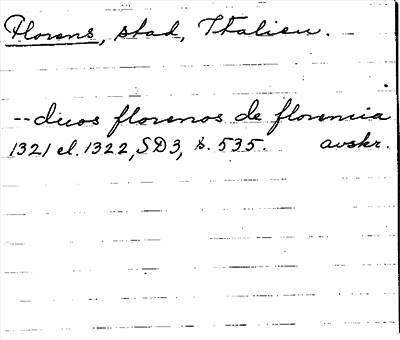 Florens, stad, Italien.
--duos florenos de florencia
1321 el. 1322, SD3, s. 535. avskr.